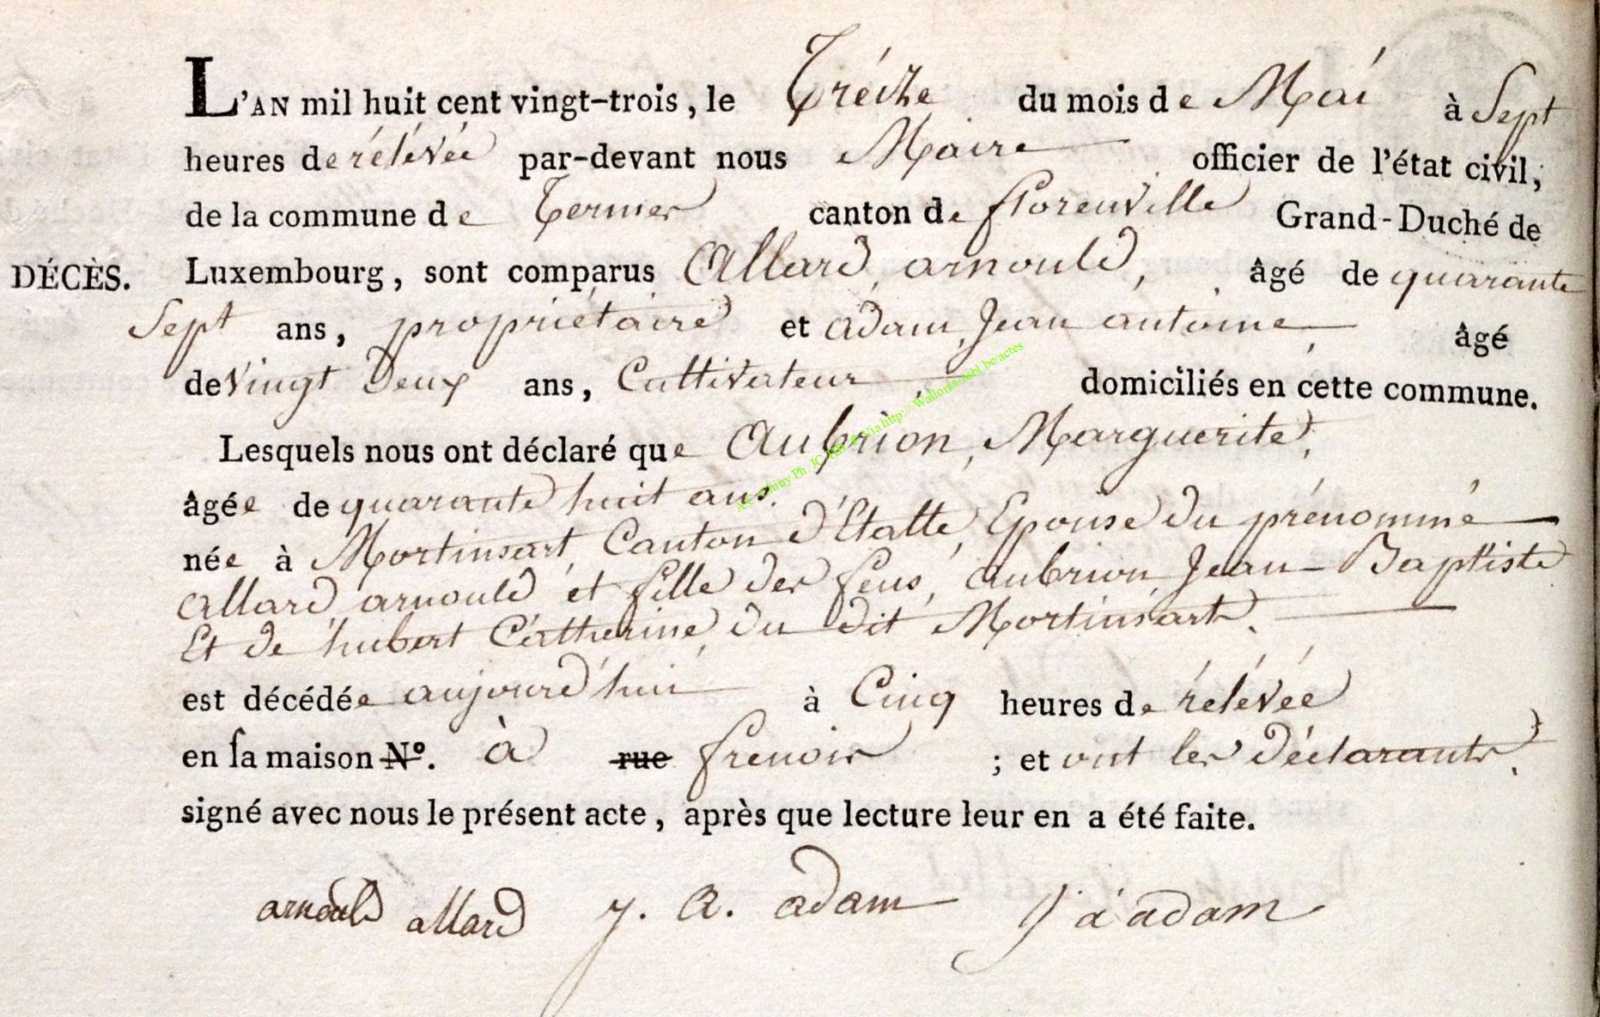 L'AN mil huit cent vingt-trois, le Tréize du mois de Mai à Sept
heures de rélévée par-devant nous Maire officier de l'état civil,
de la commune de Termes canton de florenville Grand-Duché de
DÉCÈS. Luxembourg, sont comparus Allard, arnould, âgé de quarante
Sept ans, propriétaire et adam, Jean antoine, âgé
de vingt Deux ans, Cultivateur, domiciliés en cette commune.
Lesquels nous ont déclaré que Aubrion, Marguerite,
âgée de quarante huit ans.
née à Mortinsart, Canton d'Etalle, Epouse du prénommé
allard arnould et fille des feus, aubrion Jean-Baptiste
Et de hubert Cathérine, du dit Mortinsart.
est décédée aujourd'hui à Cinq heures de rélévée
en sa maison N°. à rue frenois ; et ont les déclarants,
signé avec nous le présent acte, après que lecture leur en a été faite.
arnould allard J. A. adam J a adam